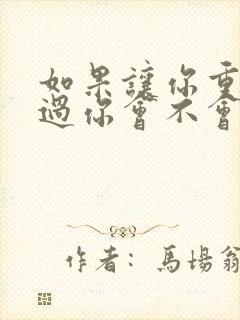 如果讓你重
過你會不會
作者：馬場翁